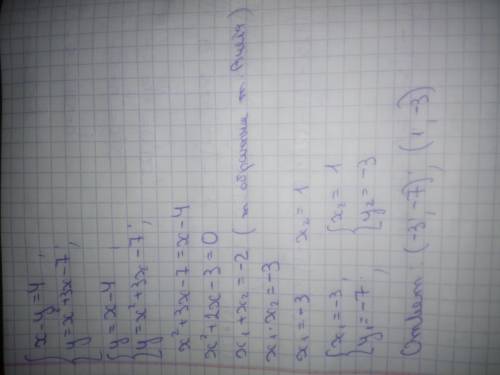 {x-y=4,
{y=x²+3x-7;
{y=x-4
{y=x²+3x-7;
x²+3x-7=x-4
x²+2x-3=0
x₁+x₂=-2 (т обратная т. Виета)
x₁·x₂=-3
x₁=-3 x₂=1
{x₁=-3, {x₂=1
{y₁=-7; {y₂=-3
Ответ: (-3; -7); (1; -3)